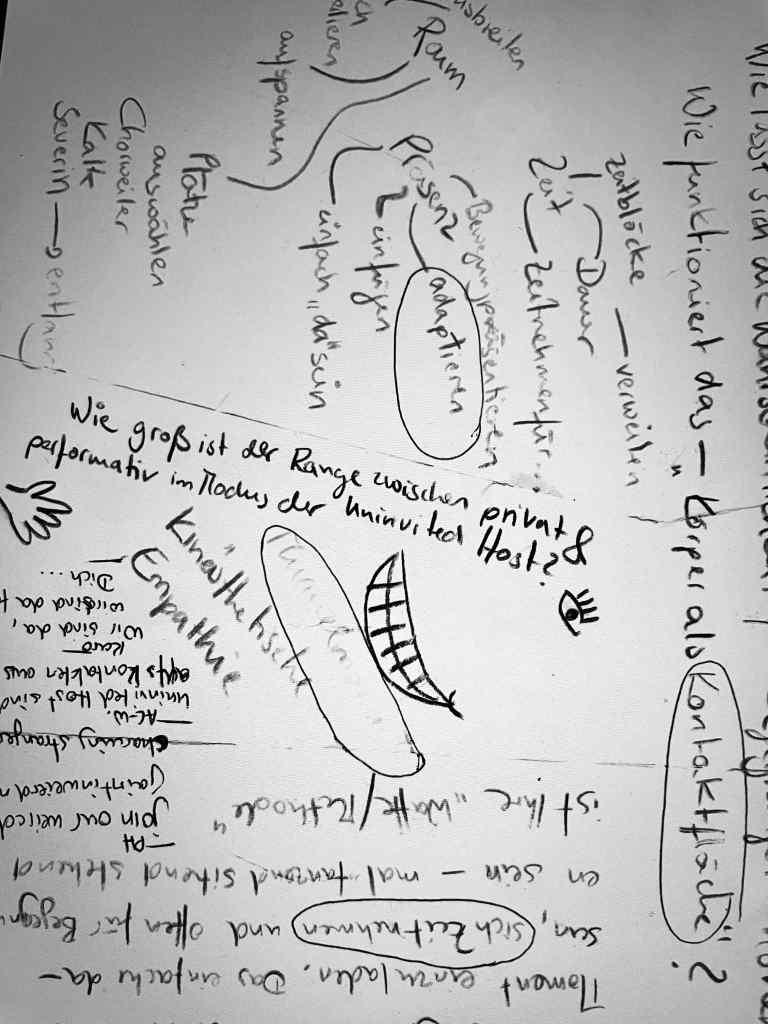 Wie lässt sich die
Wie funktioniert das – „Körper als Kontaktfläche"?
zeitblöcke — verweilen
Dauer
Zeit — Zeitnehmen für...
Bewegung präsentieren
Präsenz
adaptieren
einfügen
einfach „da" sein
Raum
ausbreiten
aufspannen
Plätze
auswählen
Chorweiler
Kalk
Severin → entlang
Wie groß ist der Range zwischen privat &
performativ im Modus der Uninvited Host?
„Kinästhetische
Empathie
Moment einzuladen. Das einfache da-
sein, sich Zeit nehmen und offen für
en sein – mal tanzend sitzend stehend
ist ihre „Waffe/Methode"
— At
join our weired
chasing stranger
— AC-W.
uninvited Host sind
aufs Kontakten aus
wir sind da,
wir sind da
Dich...